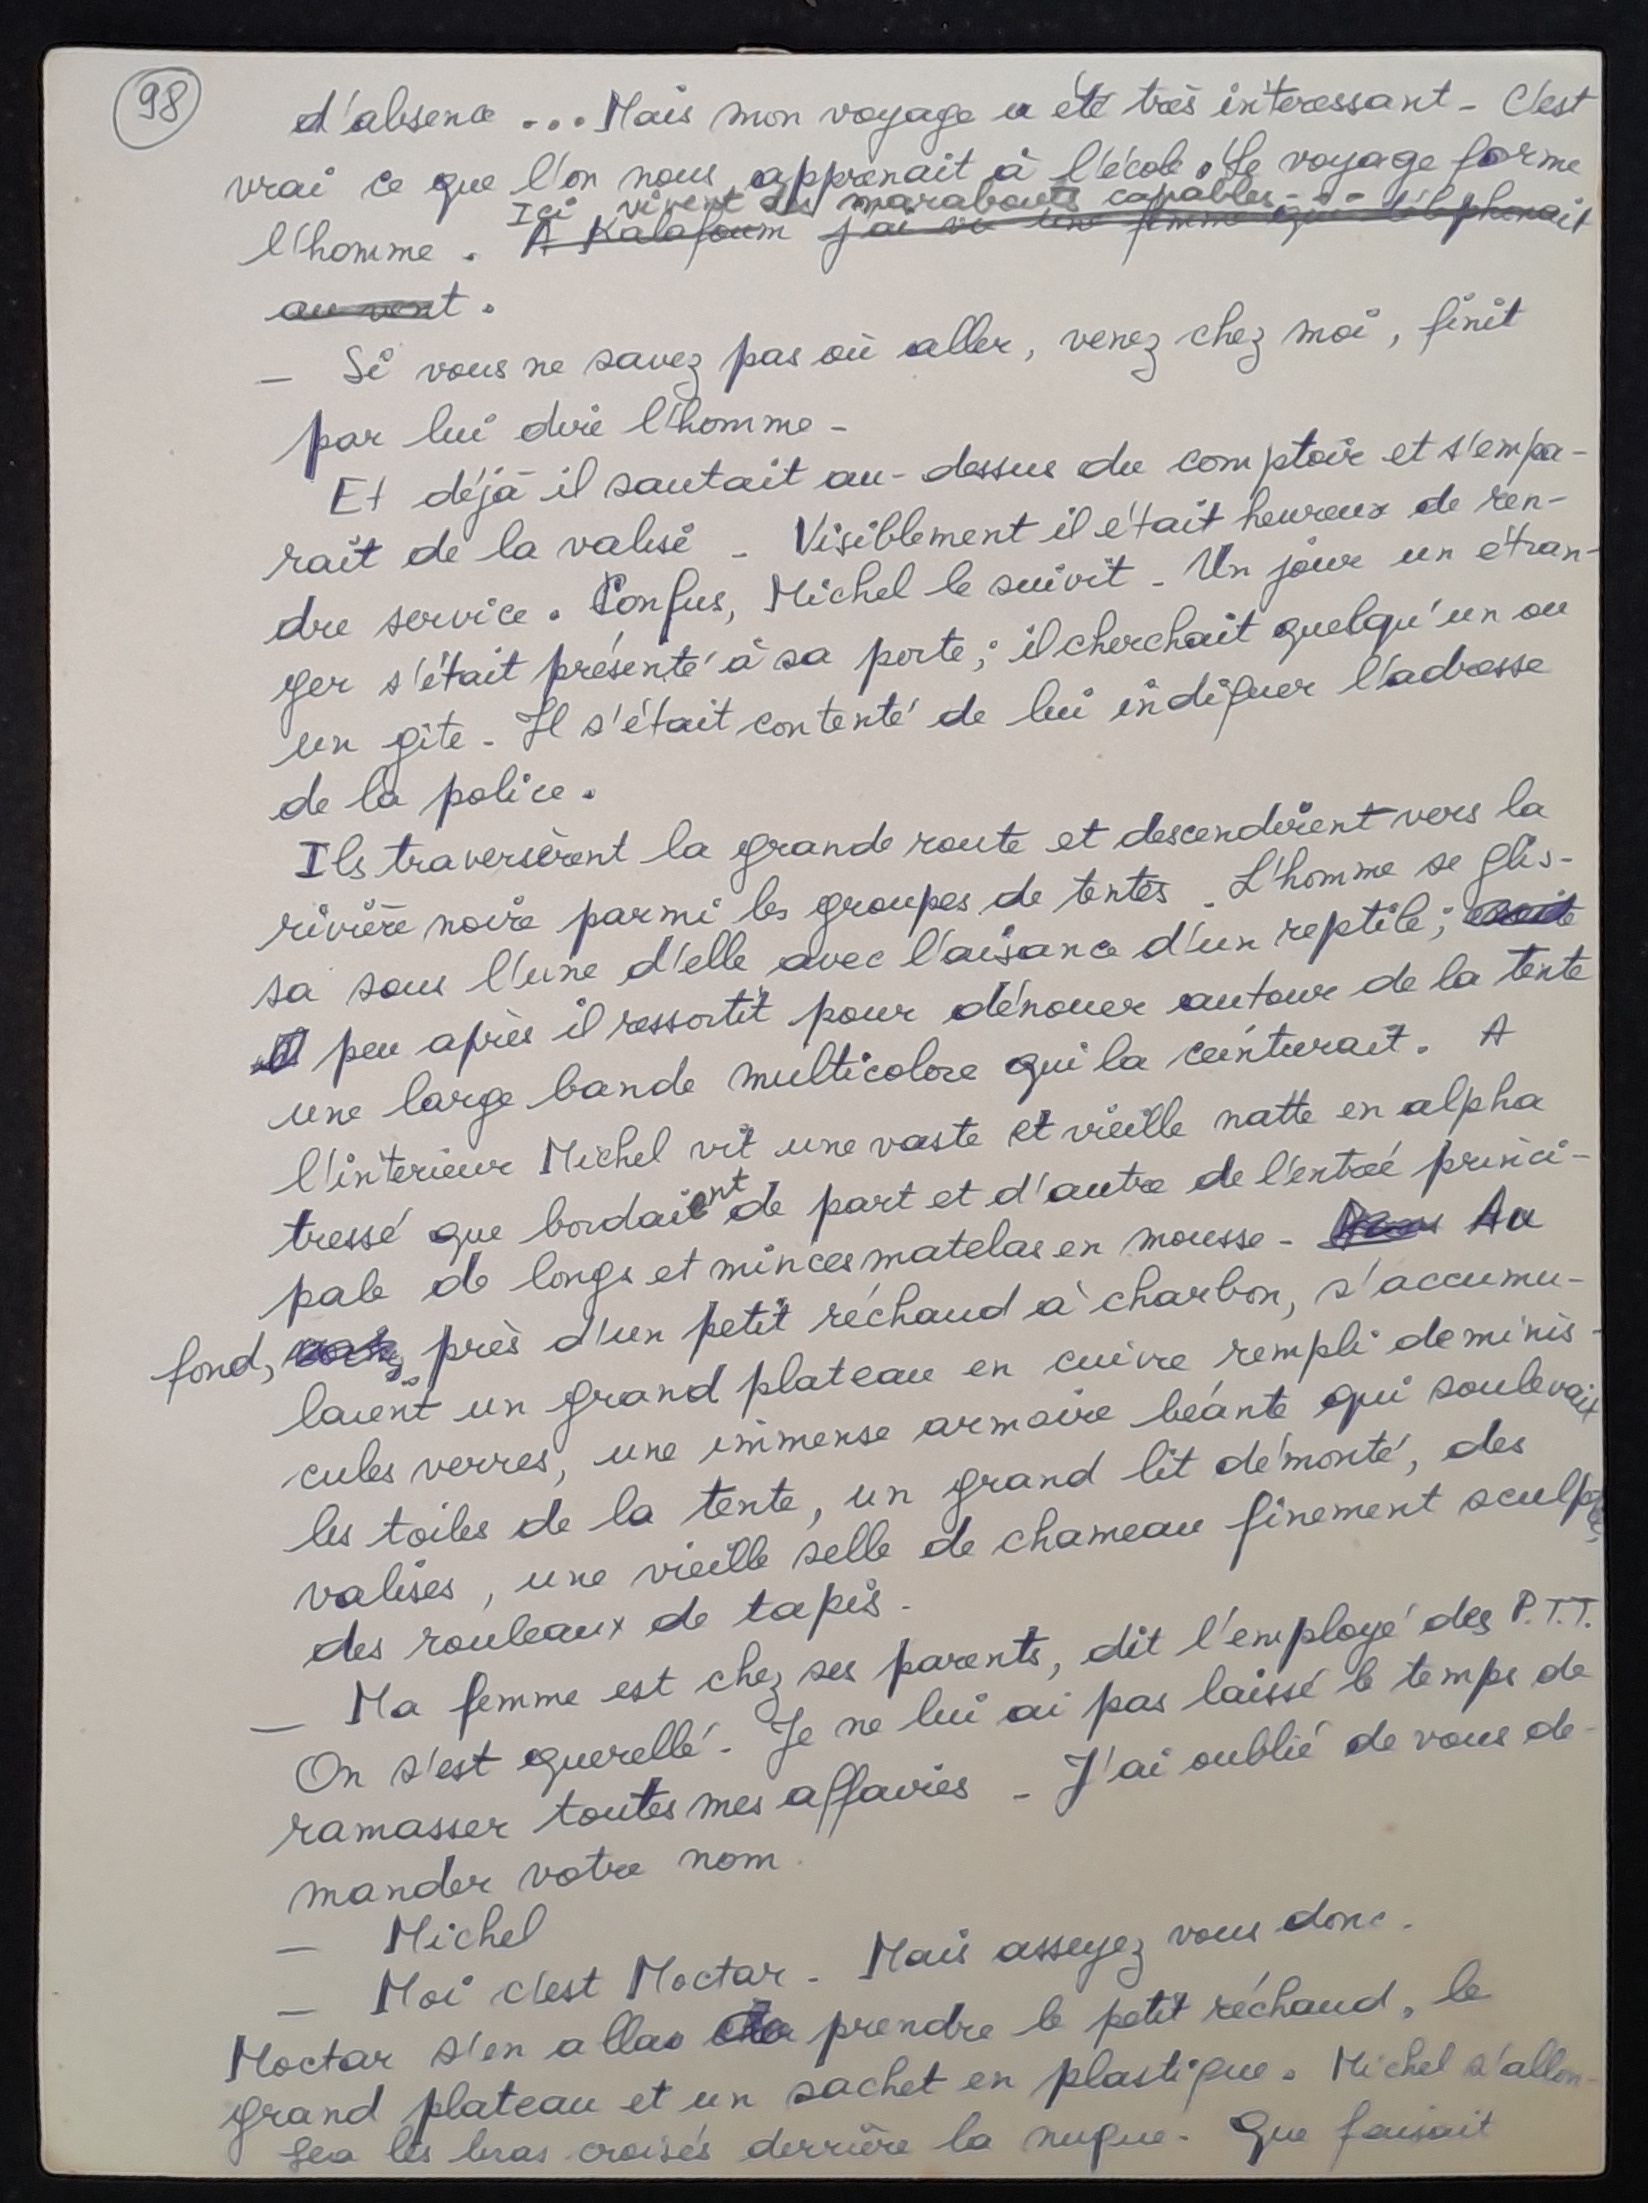 98
d'absence ... Mais mon voyage a été très intéressant - C'est
vrai ce que l'on nous apprenait à l'école. Le voyage forme
Ici vivent des marabouts capables - - -
l'homme. A Kalafoum j'ai vu une femme qui téléphonait
au vent.
- Si vous ne savez pas où aller, venez chez moi, finit
par lui dire l'homme -
Et déjà il sautait au-dessus du comptoir et s'empa-
rait de la valise - Visiblement il était heureux de ren-
dre service. Confus, Michel le suivit - Un jour un étran-
ger s'était présenté à sa porte; il cherchait quelqu'un ou
un gîte - Il s'était contenté de lui indiquer l'adresse
de la police.
Ils traversèrent la grande route et descendirent vers la
rivière noire parmi les groupes de tentes - L'homme se glis-
sa sous l'une d'elle avec l'aisance d'un reptile;
peu après il ressortit pour dénouer autour de la tente
une large bande multicolore qui la ceinturait. A
l'intérieur Michel vit une vaste et vieille natte en alpha
tressé que bordaient de part et d'autre de l'entrée princi-
pale de longs et minces matelas en mousse - Au
fond, près d'un petit réchaud à charbon, s'accumu-
laient un grand plateau en cuivre rempli de minis-
cules verres, une immense armoire béante qui soulevait
les toiles de la tente, un grand lit démonté, des
valises, une vieille selle de chameau finement sculptée,
des rouleaux de tapis -
- Ma femme est chez ses parents, dit l'employé des P.T.T.
On s'est querellé - Je ne lui ai pas laissé le temps de
ramasser toutes mes affaires - J'ai oublié de vous de-
mander votre nom.
- Michel
- Moi c'est Moctar - Mais asseyez vous donc.
Moctar s'en alla prendre le petit réchaud, le
grand plateau et un sachet en plastique. Michel s'allon-
gea les bras croisés derrière la nuque - Que faisait